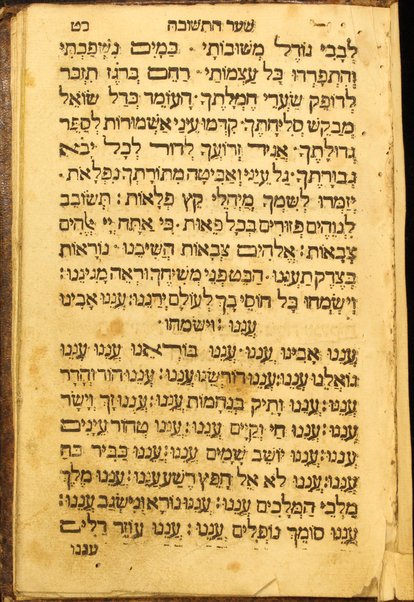 שער התשובה כט
לבבי נודל משובותי׃ כמים נשפכתי
והתפרדו כל עצמותי׃ רחם ברגז תזכר
לדופק שערי חמלתך׃ העומד כדל שואל
מבקש סליחתך׃ קדמו עיני אשמורות לספר
גדולתך׃ אגיד זרועך לדור לכל יבא
גבורתך׃ גל עיני ואביטה מתורתך נפלאות׃
יזמרו לשמך מיחלי קץ פלאות׃ תשובב
לנוהים פזורים בכל פאות׃ כי אתה יי אלהים
צבאות׃ אלהים צבאות השיבנו׃ נוראות
בצדק תעננו׃ הבט פני משיחך וראה מגיננו׃
וישמחו כל חוסי בך לעולם ירננו׃ עננו אבינו
עננו׃ וישמחו׃
עננו אבינו עננו׃ עננו בוראנו עננו עננו
גואלנו עננו׃ עננו דורשנו עננו׃ עננו הוד והדר
עננו׃ עננו ותיק בנחמות עננו׃ עננו זך וישר
עננו׃ עננו חי וקיים עננו׃ עננו טהור עינים
עננו׃ עננו יושב שמים עננו׃ עננו כביר כח
עננו׃ עננו לא אל חפץ רשע עננו׃ עננו מלך
מלכי המלכים עננו׃ עננו נורא ונישגב עננו׃
עננו סומך נופלים עננו׃ עננו עוזר דלים
עננו